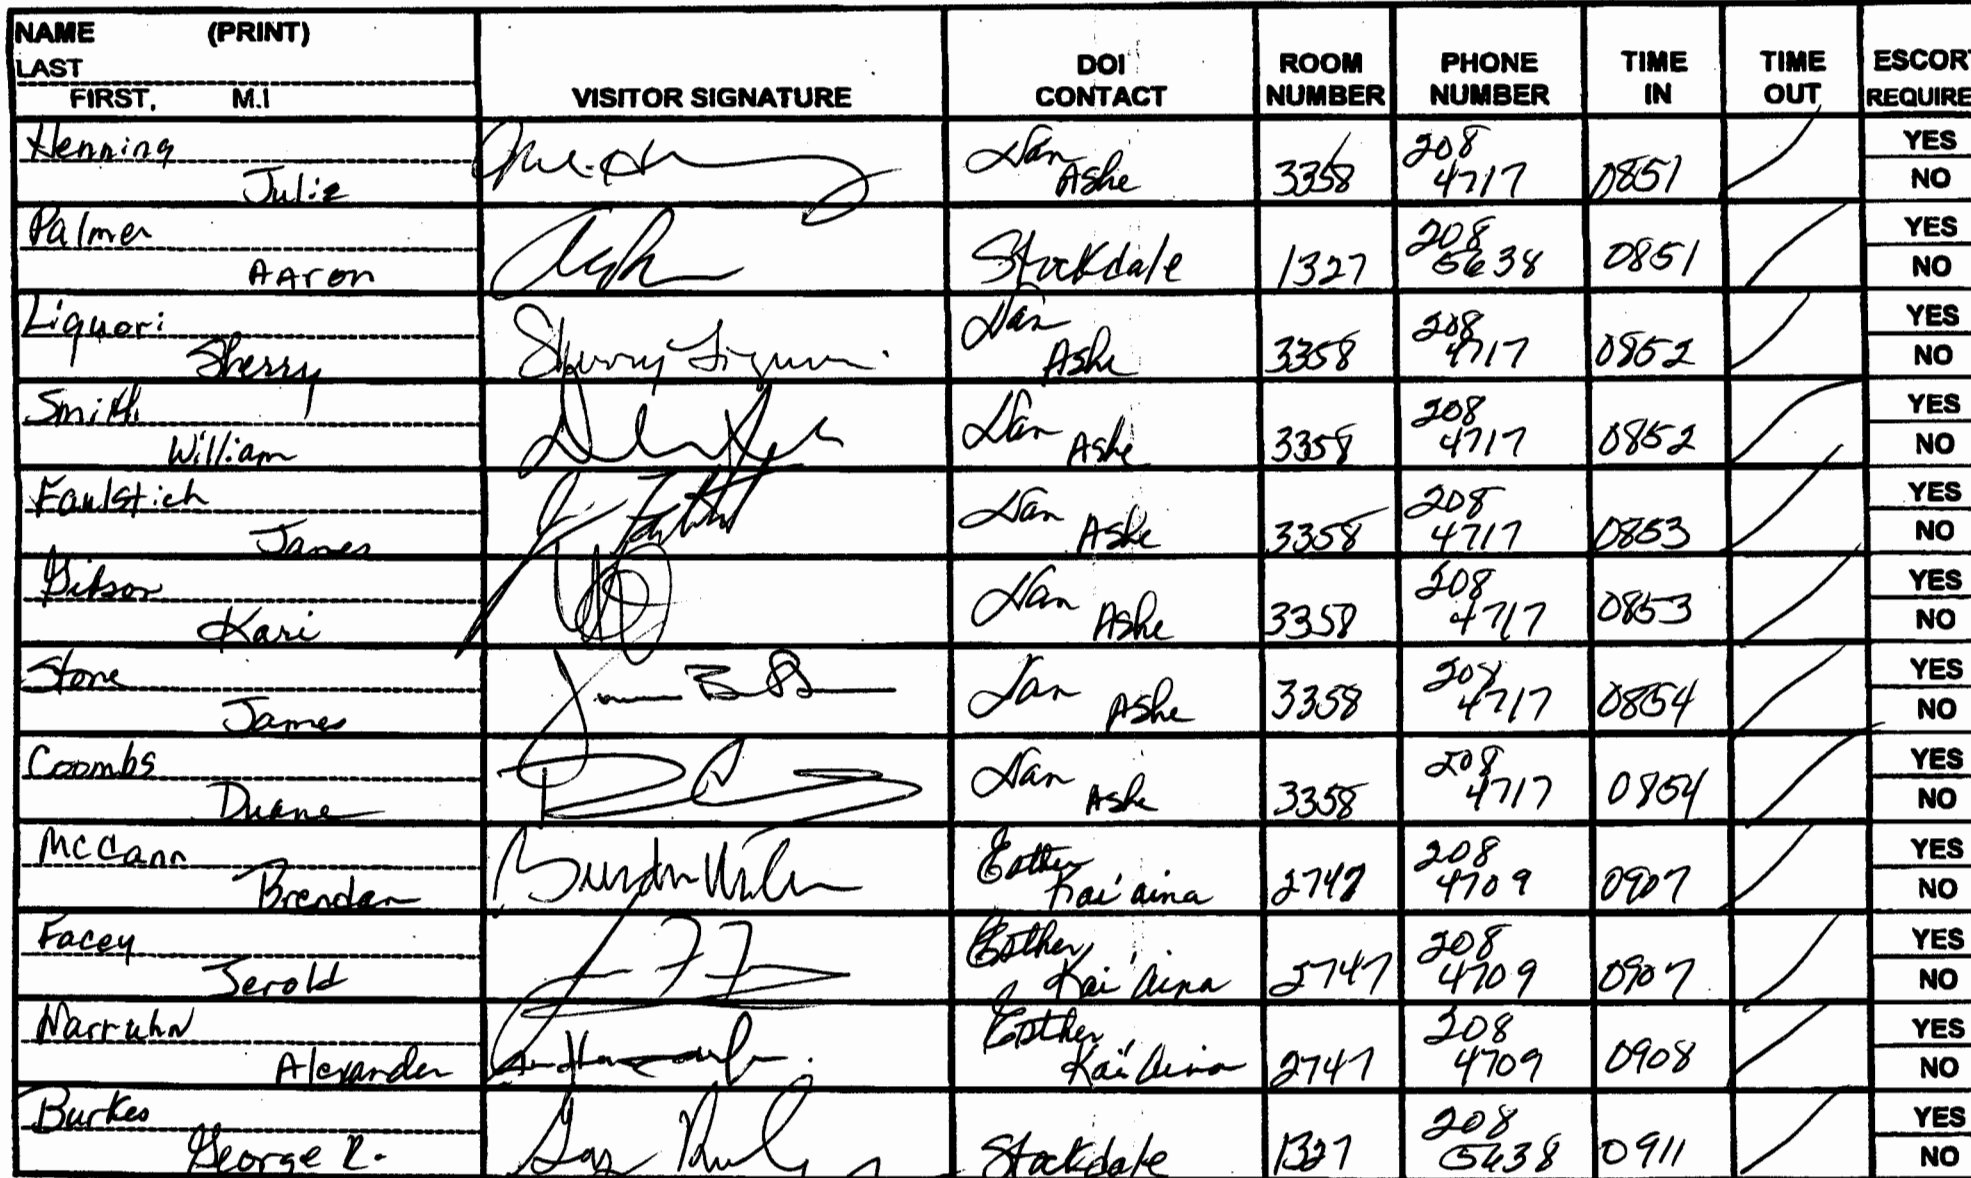 NAME (PRINT)
LAST
FIRST, M.I
VISITOR SIGNATURE
DOI CONTACT
ROOM NUMBER
PHONE NUMBER
TIME IN
TIME OUT
ESCORT REQUIRE
Henning
Julie
Dan Ashe 3358 208 4717 0851 YES NO
Palmer
Aaron
Stockdale 1327 208 5638 0851 YES NO
Liquori
Sherry
Sherry Liquori
Dan Ashe 3358 208 4717 0852 YES NO
Smith
William
Dan Ashe 3358 208 4717 0852 YES NO
Faulstich
James
Dan Ashe 3358 208 4717 0853 YES NO
Gibson
Kari
Dan Ashe 3358 208 4717 0853 YES NO
Stone
James
Dan Ashe 3358 208 4717 0854 YES NO
Coombs
Duane
Dan Ashe 3358 208 4717 0854 YES NO
McCann
Brendan
Esther Kai'aina 2747 208 4709 0907 YES NO
Facey
Jerold
Esther Kai'Aina 2747 208 4709 0907 YES NO
Narruhn
Alexander
Esther Kai'Aina 2747 208 4709 0908 YES NO
Burkes
George R.
Stockdale 1327 208 5638 0911 YES NO